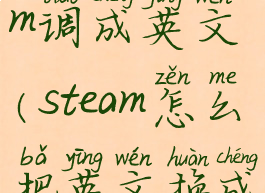 m调成英文
zěn me
(steam怎么
bǎ yīng wén huàn chéng
把英文换成